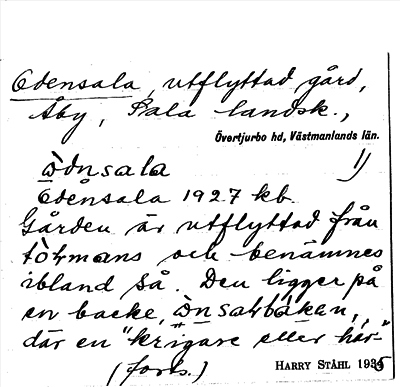 Edensala, utflyttad gård,
Åby, Sala landsk.,
Övertjurbo hd, Västmanlands län.
1)
Edensala 1927 kb.
Gården är utflyttad från
och benämnes
ibland så. Den ligger på
en backe,
där en "krigare eller här-
(forts.) HARRY STÅHL 1935